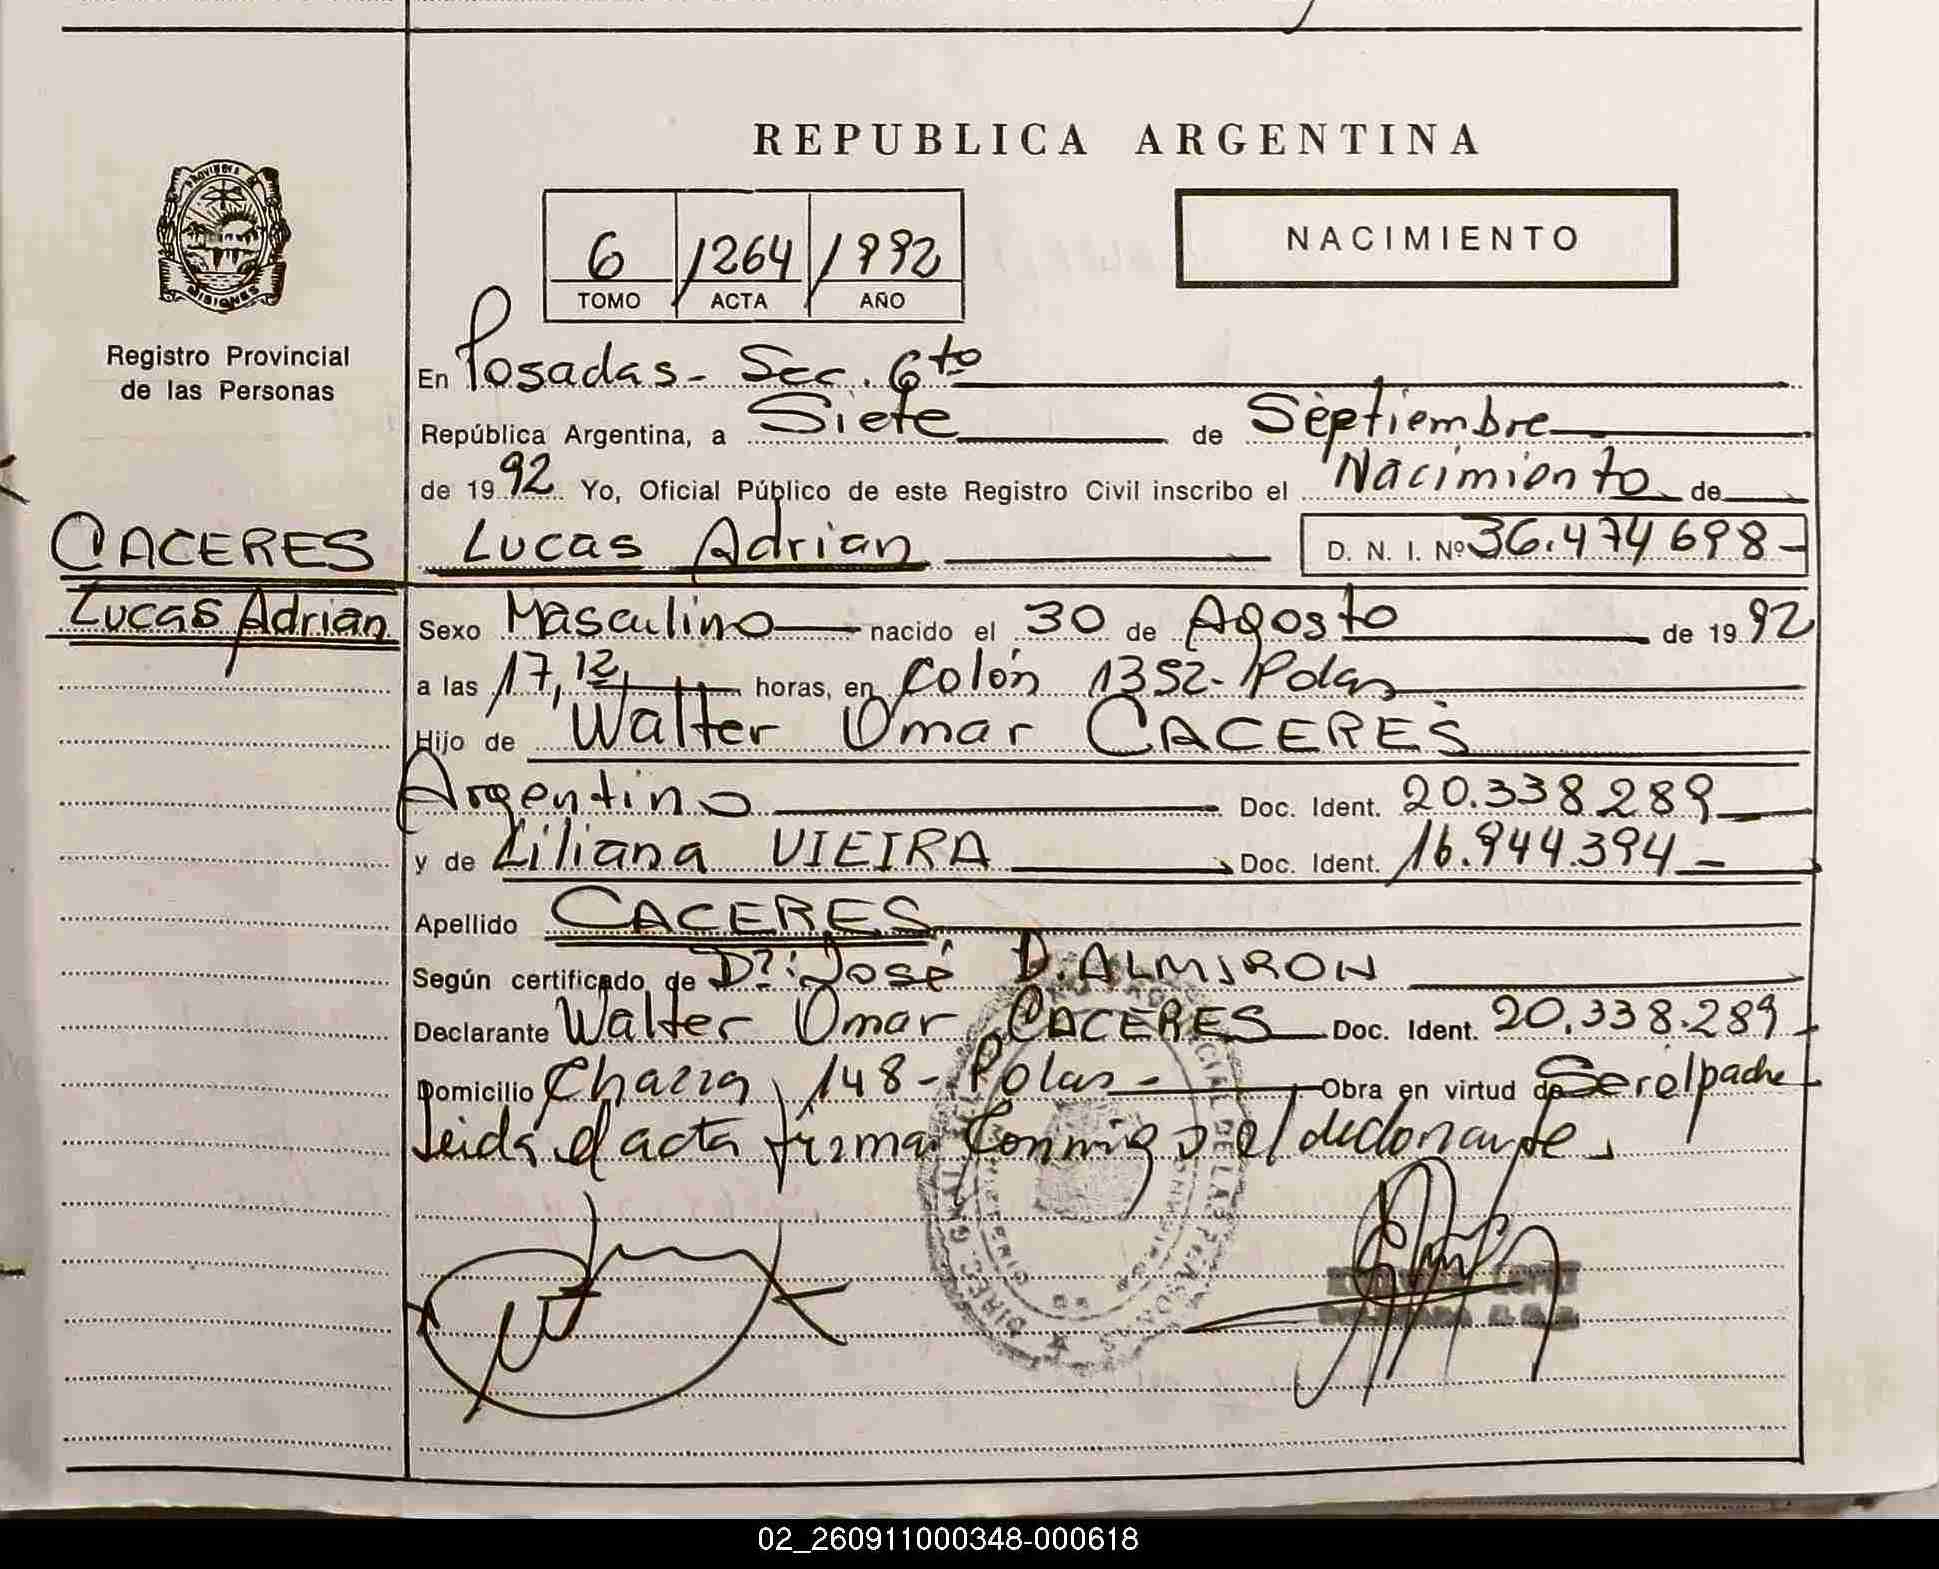 REPUBLICA ARGENTINA
NACIMIENTO
6 1264 1992
TOMO ACTA AÑO
Registro Provincial
de las Personas
En Posadas - Sec. 6to
República Argentina, a Siete de Septiembre
de 1992 Yo, Oficial Público de este Registro Civil inscribo el Nacimiento de
CACERES
Lucas Adrian
Lucas Adrian D. N. I. Nº 36.474698-
Sexo Masculino nacido el 30 de Agosto de 1992
a las 17,12 horas, en Colón 1352- Pdas
Hijo de Walter Omar CACERES
Argentino Doc. Ident. 20.338.289
y de Liliana VIEIRA Doc. Ident. 16.944.394-
Apellido CACERES
Según certificado de Dr: José D. ALMIRON
Declarante Walter Omar CACERES Doc. Ident. 20.338.289
Domicilio Chacra 148- Pdas- Obra en virtud de Ser el padre
Leida el acta firma conmigo el declarante.
02_260911000348-000618